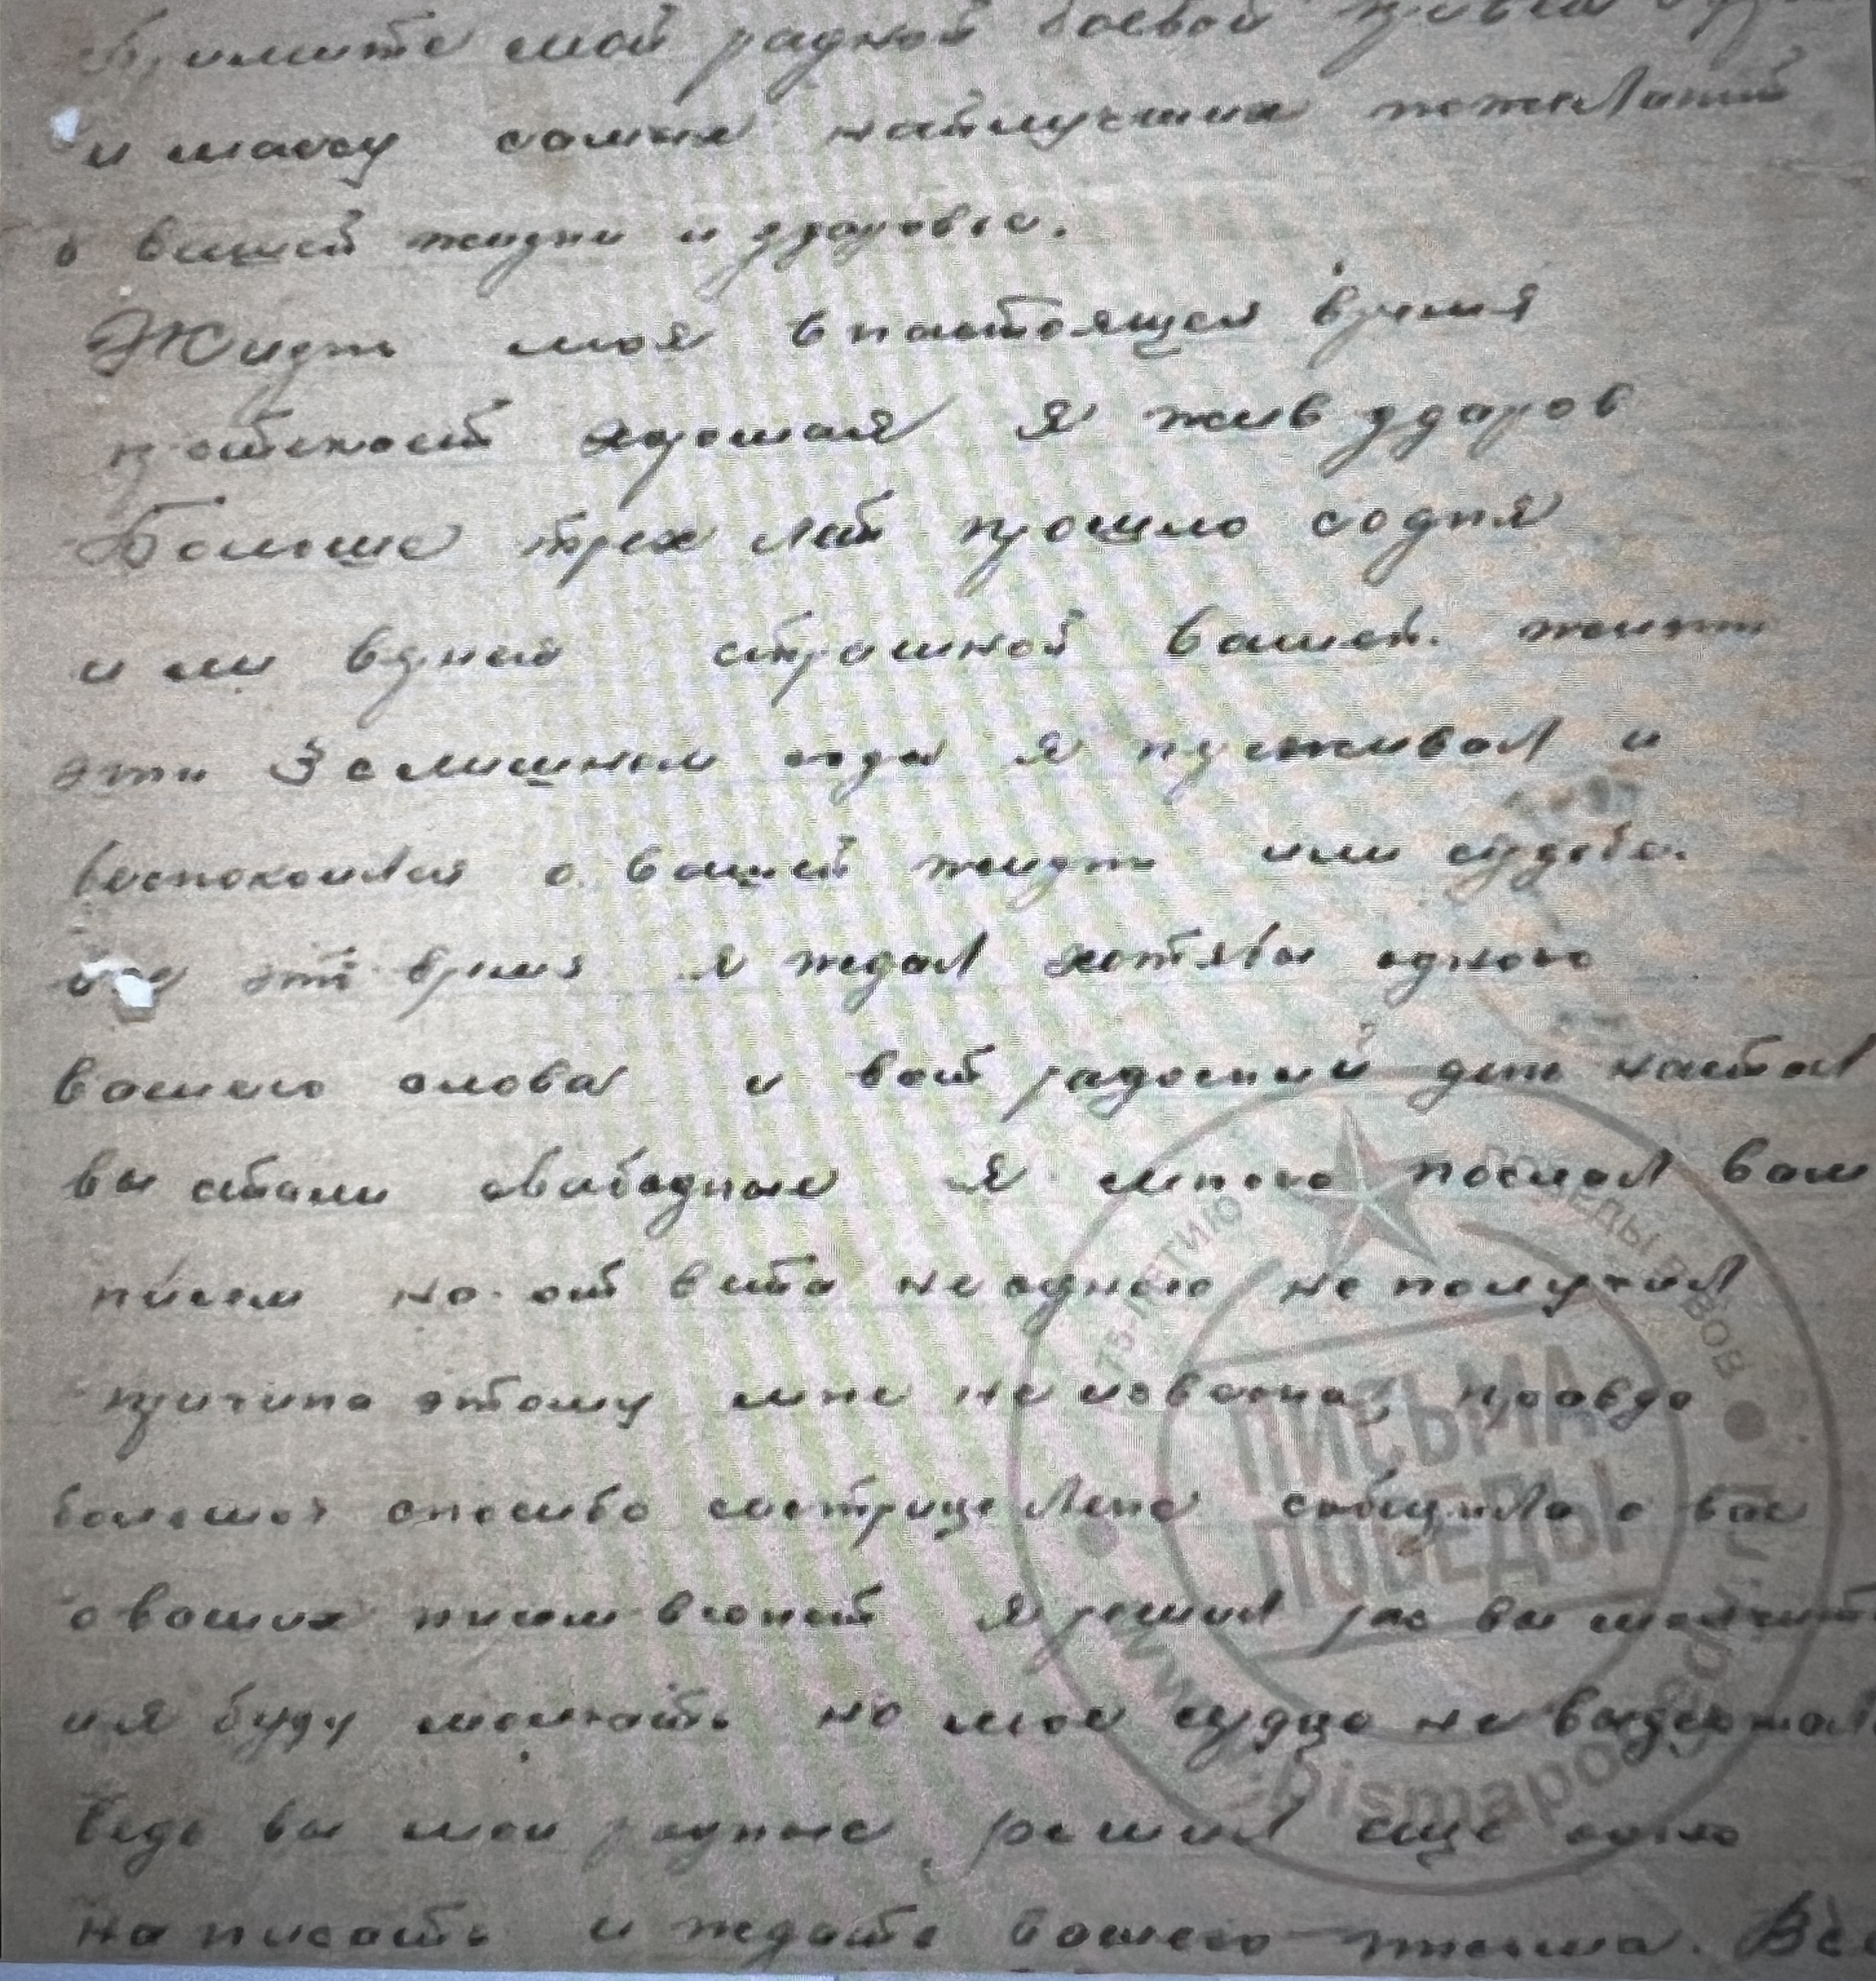 Примите мой радной боевой привет
и массу самых наилучших пожеланий
в вашей жизни и здоровье.
Жизнь моя в настоящея время
протекает хорошая я жив здоров
Больше трех лет прошло содня
страшной вашей жизни
эти 3 слишнем года я преживал и
беспокоился о вашей жизни или судьбе.
все это время я ждал хотябы одного
вашего слова и вот радосний день настал
вы стали свабодные я много послал вам
писем но от вета не одного не получил
причина этому мне не извесна, правда
большое спасибо сестрице Лене собщила о вас
о ваших писем в сонет я решил рас вы молчит
ия буду молчать но мое сердце не выдержал
ведь вы мои родные решил еще одно
написать и ждать вашего письма. Все
75-ЛЕТИЮ ПОБЕДЫ В ВОВ
ПИСЬМА
ПОБЕДЫ